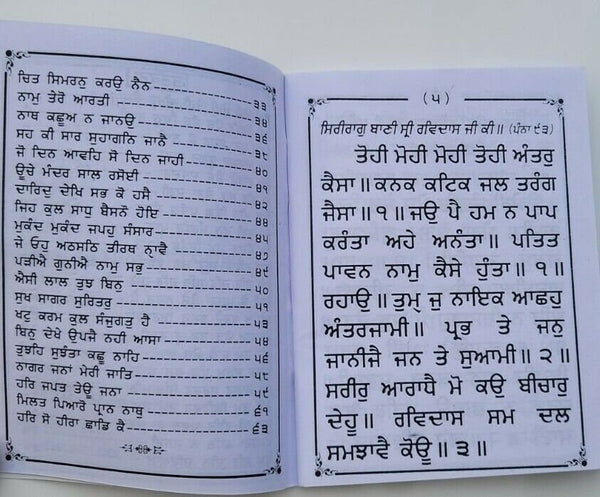 ਚਿਤ ਸਿਮਰਨੁ ਕਰਉ ਨੈਨ ੩੩
ਨਾਮੁ ਤੇਰੋ ਆਰਤੀ ੩੪
ਨਾਥ ਕਛੂਅ ਨ ਜਾਨਉ ੩੬
ਸਹ ਕੀ ਸਾਰ ਸੁਹਾਗਨਿ ਜਾਨੈ ੩੮
ਜੋ ਦਿਨ ਆਵਹਿ ਸੋ ਦਿਨ ਜਾਹੀ ੪੦
ਊਚੇ ਮੰਦਰ ਸਾਲ ਰਸੋਈ ੪੧
ਦਾਰਿਦੁ ਦੇਖਿ ਸਭ ਕੋ ਹਸੈ ੪੨
ਜਿਹ ਕੁਲ ਸਾਧੁ ਬੈਸਨੋ ਹੋਇ ੪੪
ਮੁਕੰਦ ਮੁਕੰਦ ਜਪਹੁ ਸੰਸਾਰ ੪੫
ਜੇ ਓਹੁ ਅਠਸਠਿ ਤੀਰਥ ਨ੍ਹਾਵੈ ੪੭
ਪੜੀਐ ਗੁਨੀਐ ਨਾਮੁ ਸਭੁ ੪੯
ਐਸੀ ਲਾਲ ਤੁਝ ਬਿਨੁ ੫੦
ਸੁਖ ਸਾਗਰ ਸੁਰਿਤਰੁ ੫੧
ਖਟੁ ਕਰਮ ਕੁਲ ਸੰਜੁਗਤੁ ਹੈ ੫੩
ਬਿਨੁ ਦੇਖੇ ਉਪਜੈ ਨਹੀ ਆਸਾ ੫੪
ਤੁਝਹਿ ਸੁਝੰਤਾ ਕਛੂ ਨਾਹਿ ੫੬
ਨਾਗਰ ਜਨਾਂ ਮੇਰੀ ਜਾਤਿ ੫੮
ਹਰਿ ਜਪਤ ਤੇਊ ਜਨਾ ੫੯
ਮਿਲਤ ਪਿਆਰੋ ਪ੍ਰਾਨ ਨਾਥੁ ੬੧
ਹਰਿ ਸੋ ਹੀਰਾ ਛਾਡਿ ਕੈ ੬੩
(੫)
ਸਿਰੀਰਾਗੁ ਬਾਣੀ ਸ੍ਰੀ ਰਵਿਦਾਸ ਜੀ ਕੀ॥ (ਪੰਨਾ ੯੩)
ਤੋਹੀ ਮੋਹੀ ਮੋਹੀ ਤੋਹੀ ਅੰਤਰੁ
ਕੈਸਾ॥ ਕਨਕ ਕਟਿਕ ਜਲ ਤਰੰਗ
ਜੈਸਾ॥ ੧॥ ਜਉ ਪੈ ਹਮ ਨ ਪਾਪ
ਕਰੰਤਾ ਅਹੇ ਅਨੰਤਾ॥ ਪਤਿਤ
ਪਾਵਨ ਨਾਮੁ ਕੈਸੇ ਹੁੰਤਾ॥ ੧॥
ਰਹਾਉ॥ ਤੁਮ੍ ਜੁ ਨਾਇਕ ਆਛਹੁ
ਅੰਤਰਜਾਮੀ॥ ਪ੍ਰਭ ਤੇ ਜਨੁ
ਜਾਨੀਜੈ ਜਨ ਤੇ ਸੁਆਮੀ॥ ੨॥
ਸਰੀਰੁ ਆਰਾਧੈ ਮੋ ਕਉ ਬੀਚਾਰੁ
ਦੇਹੂ॥ ਰਵਿਦਾਸ ਸਮ ਦਲ
ਸਮਝਾਵੈ ਕੋਊ॥ ੩॥